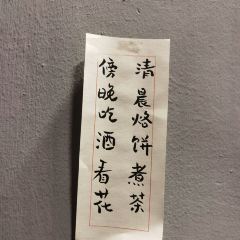 清晨烙饼煮茶
傍晚吃酒看花